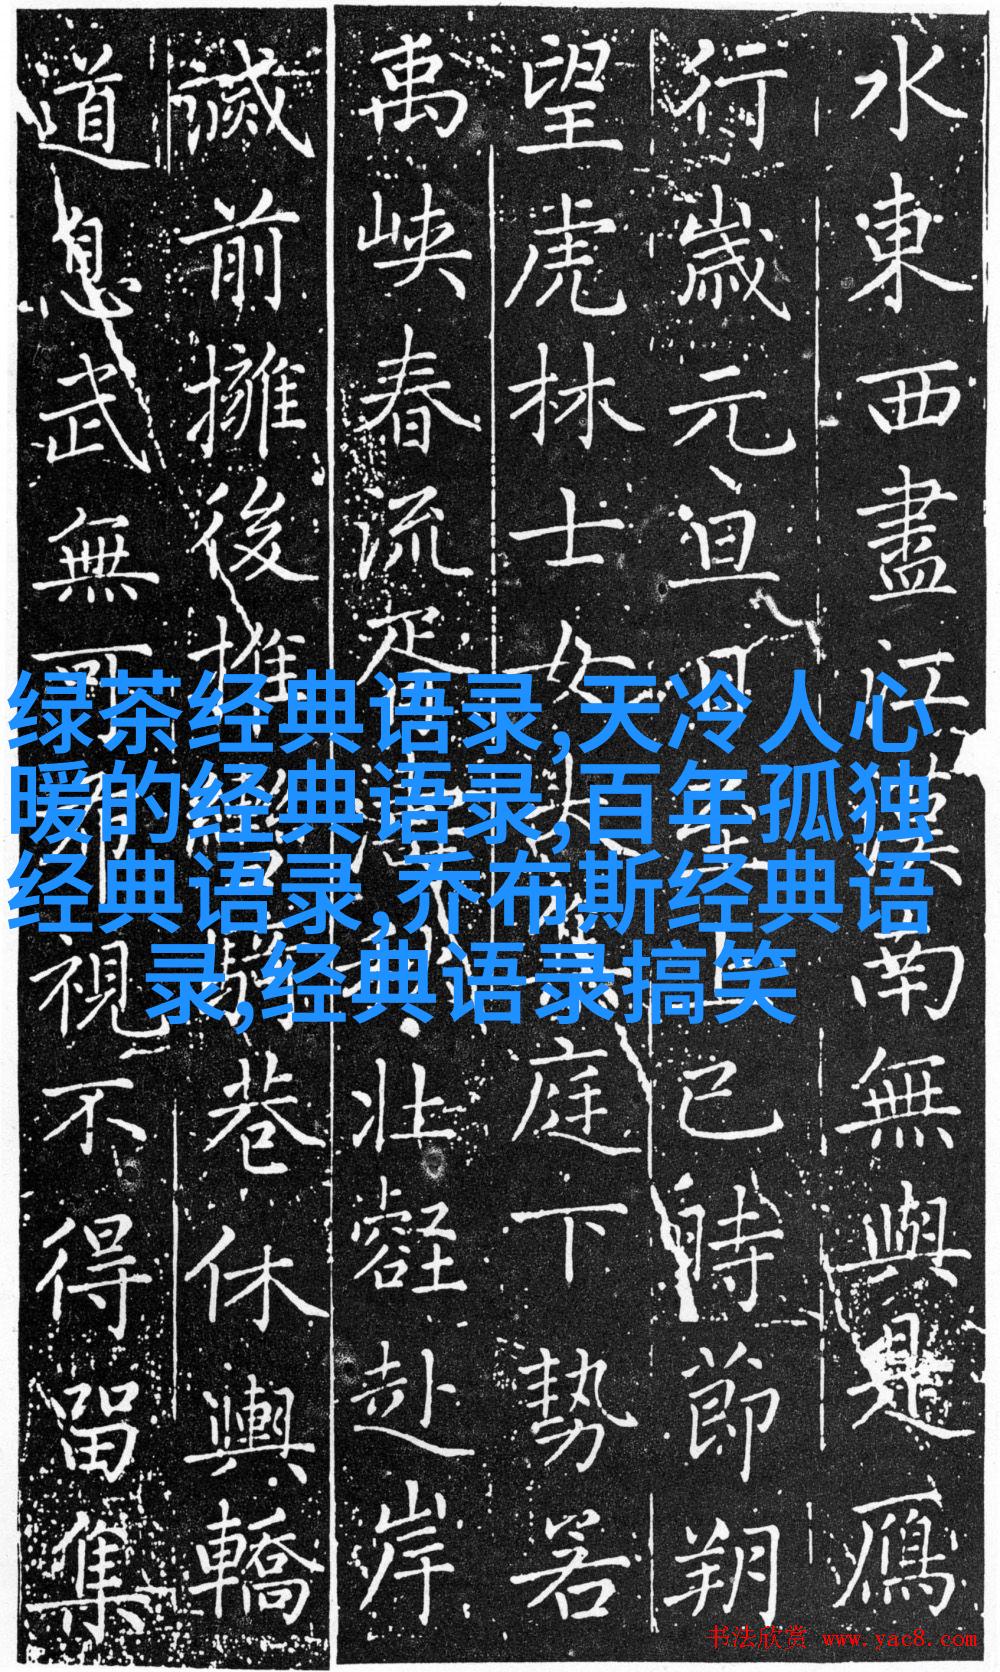 水東西盡江漢南無與是鴈
行歲元旦上巳時節朔
望虎林士女大庭下勢若
禹峽春流壯壑赴岸
滅前擁後推巷休輿轎
道息武無可視不得留集
绿茶经典语录,天冷人心
暖的经典语录,百年孤独
经典语录,乔布斯经典语
录,经典语录搞笑
书法欣赏 www.yac8.com